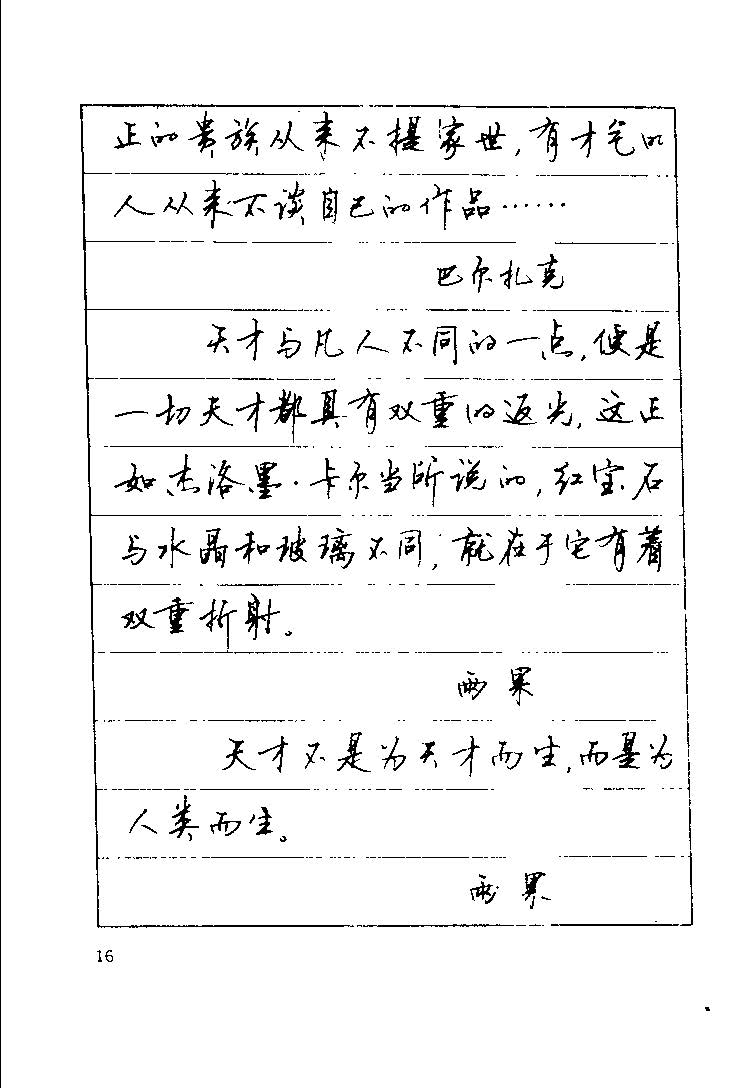 正的贵族从来不提家世,有才气的
人从来不谈自己的作品……
巴尔扎克
天才与凡人不同的一点,便是
一切天才都具有双重的返光,这正
如杰洛墨·卡尔当所说的,红宝石
与水晶和玻璃不同,就在于它有着
双重折射。
雨果
天才不是为天才而生,而是为
人类而生。
雨果
16